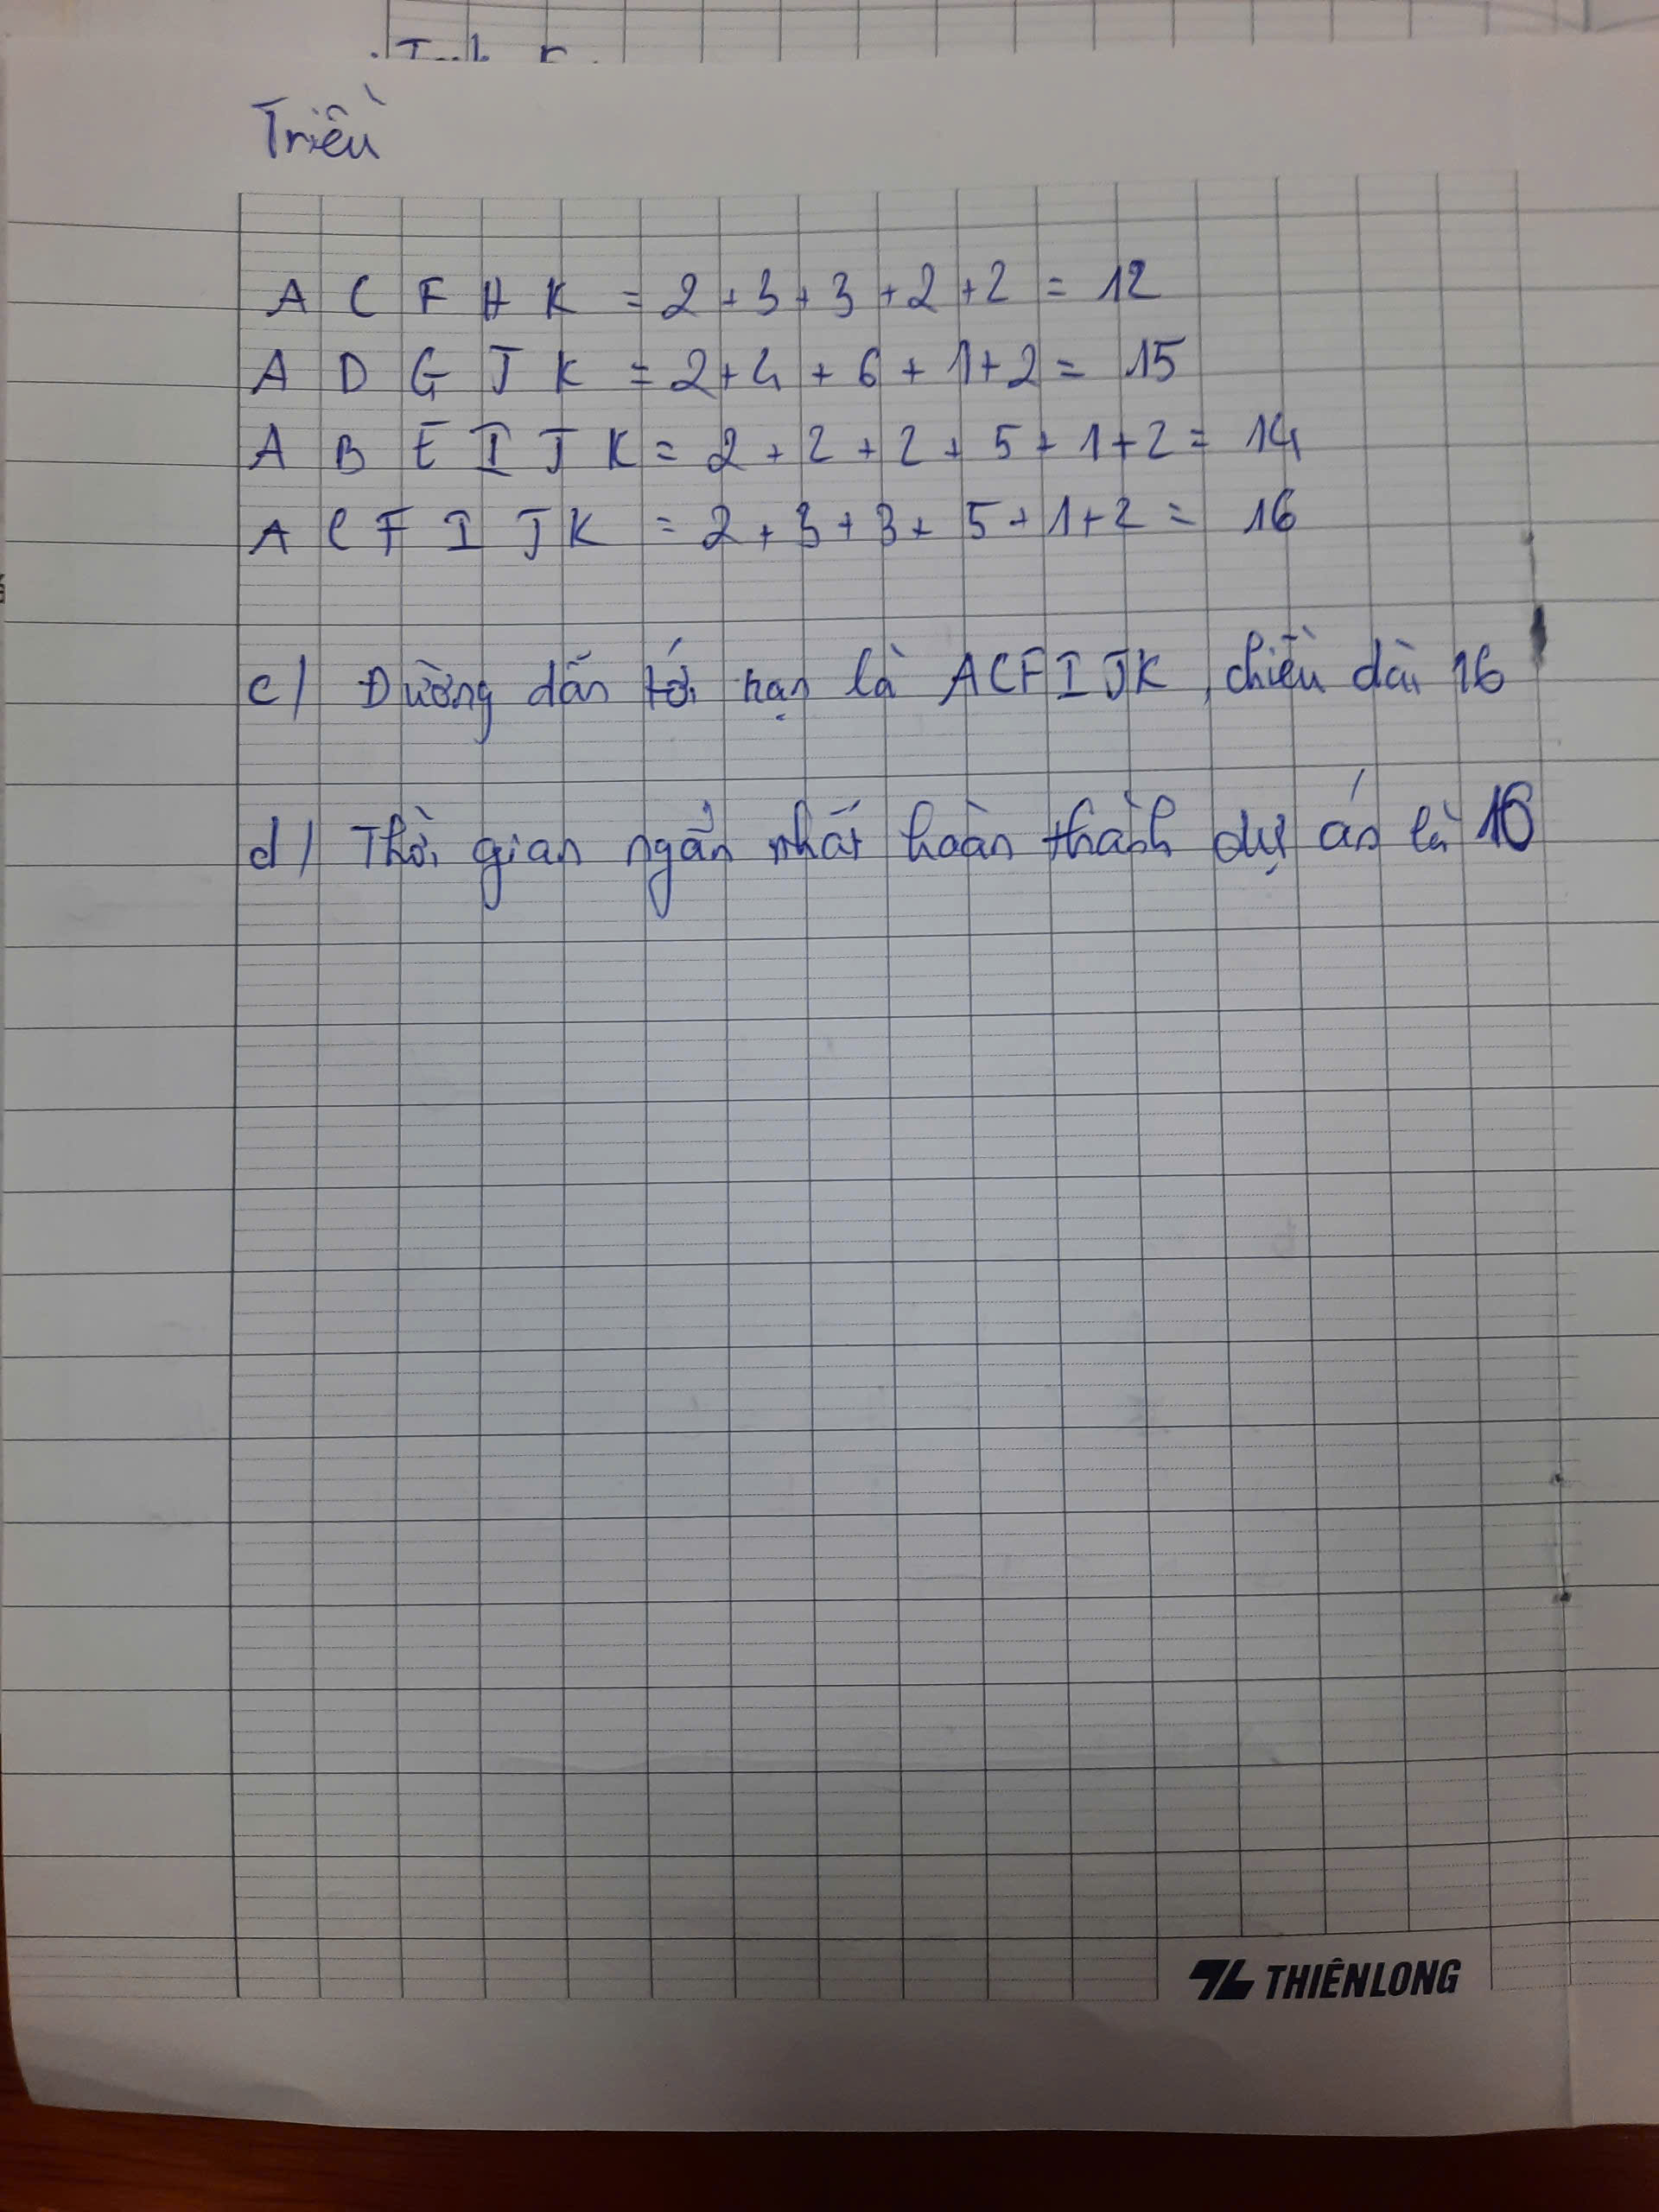 Triều
A C F H K = 2 + 3 + 3 + 2 + 2 = 12
A D G J K = 2 + 4 + 6 + 1 + 2 = 15
A B E I J K = 2 + 2 + 2 + 5 + 1 + 2 = 14
A C F I J K = 2 + 3 + 3 + 5 + 1 + 2 = 16
c/ Đường dẫn tới hạn là ACFIJK, chiều dài 16
d/ Thời gian ngắn nhất hoàn thành dự án là 16
THIÊN LONG